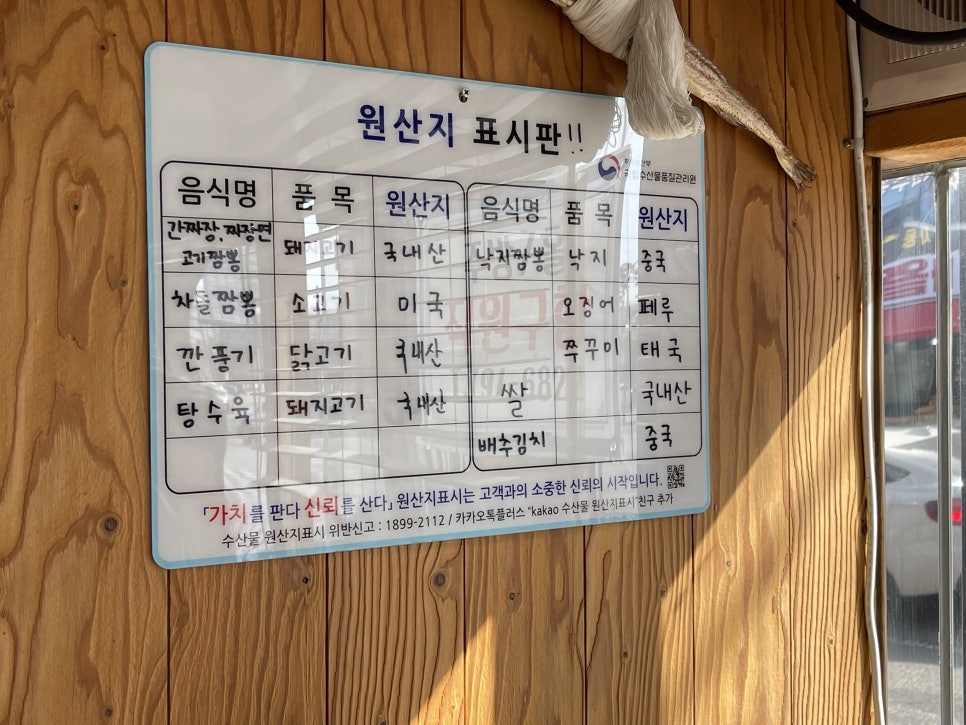 원산지 표시판!!
해양수산부
국립수산물품질관리원
음식명 품목 원산지
간짜장, 짜장면 고기짬뽕 돼지고기 국내산
차돌짬뽕 소고기 미국
깐풍기 닭고기 국내산
탕수육 돼지고기 국내산
음식명 품목 원산지
낙지짬뽕 낙지 중국
오징어 페루
쭈꾸미 태국
쌀 국내산
배추김치 중국
「가치를 판다 신뢰를 산다」 원산지표시는 고객과의 소중한 신뢰의 시작입니다.
수산물 원산지표시 위반신고 : 1899-2112 / 카카오톡플러스 "kakao 수산물 원산지표시"친구 추가